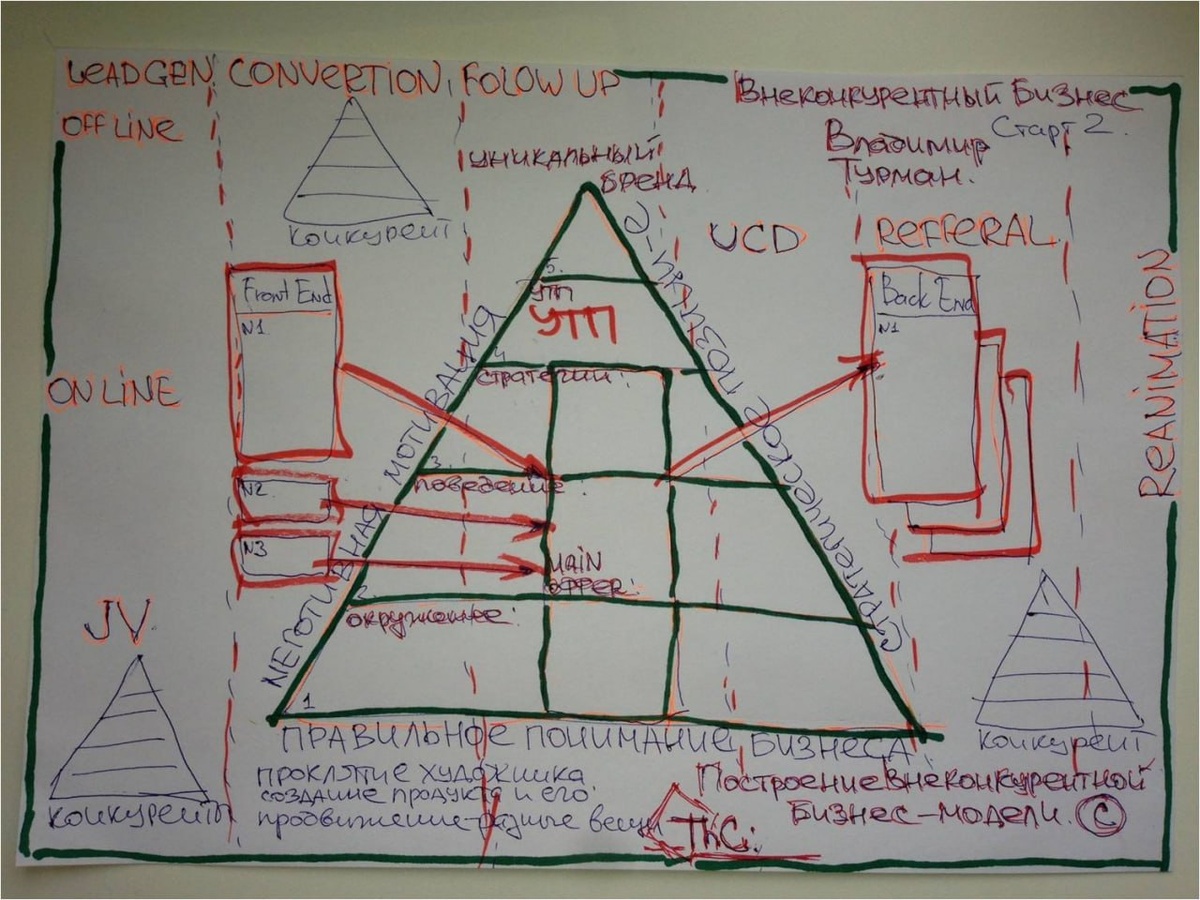 LEADGEN CONVERTION FOLOW UP
Внеконкурентный Бизнес
Старт 2.
OFFLINE
Владимир
Турман.
уникальный
бренд
UCD
REFFERAL
конкурент
REANIMATION
Front End
N1
Back End
N1
5.
УТП
УТП
4
стратегии.
ONLINE
3.
поведение.
N2
N3
MAIN
OFFER.
2.
окружение.
1
МОТИВАЦИЯ
СТРАТЕГИЧЕСКОЕ
JV
ПРАВИЛЬНОЕ ПОНИМАНИЕ БИЗНЕСА.
конкурент
конкурент
проклятие художника
создание продукта и его
продвижение-разные вещи
Построение внеконкурентной
Бизнес-модели. ©
ТКС.